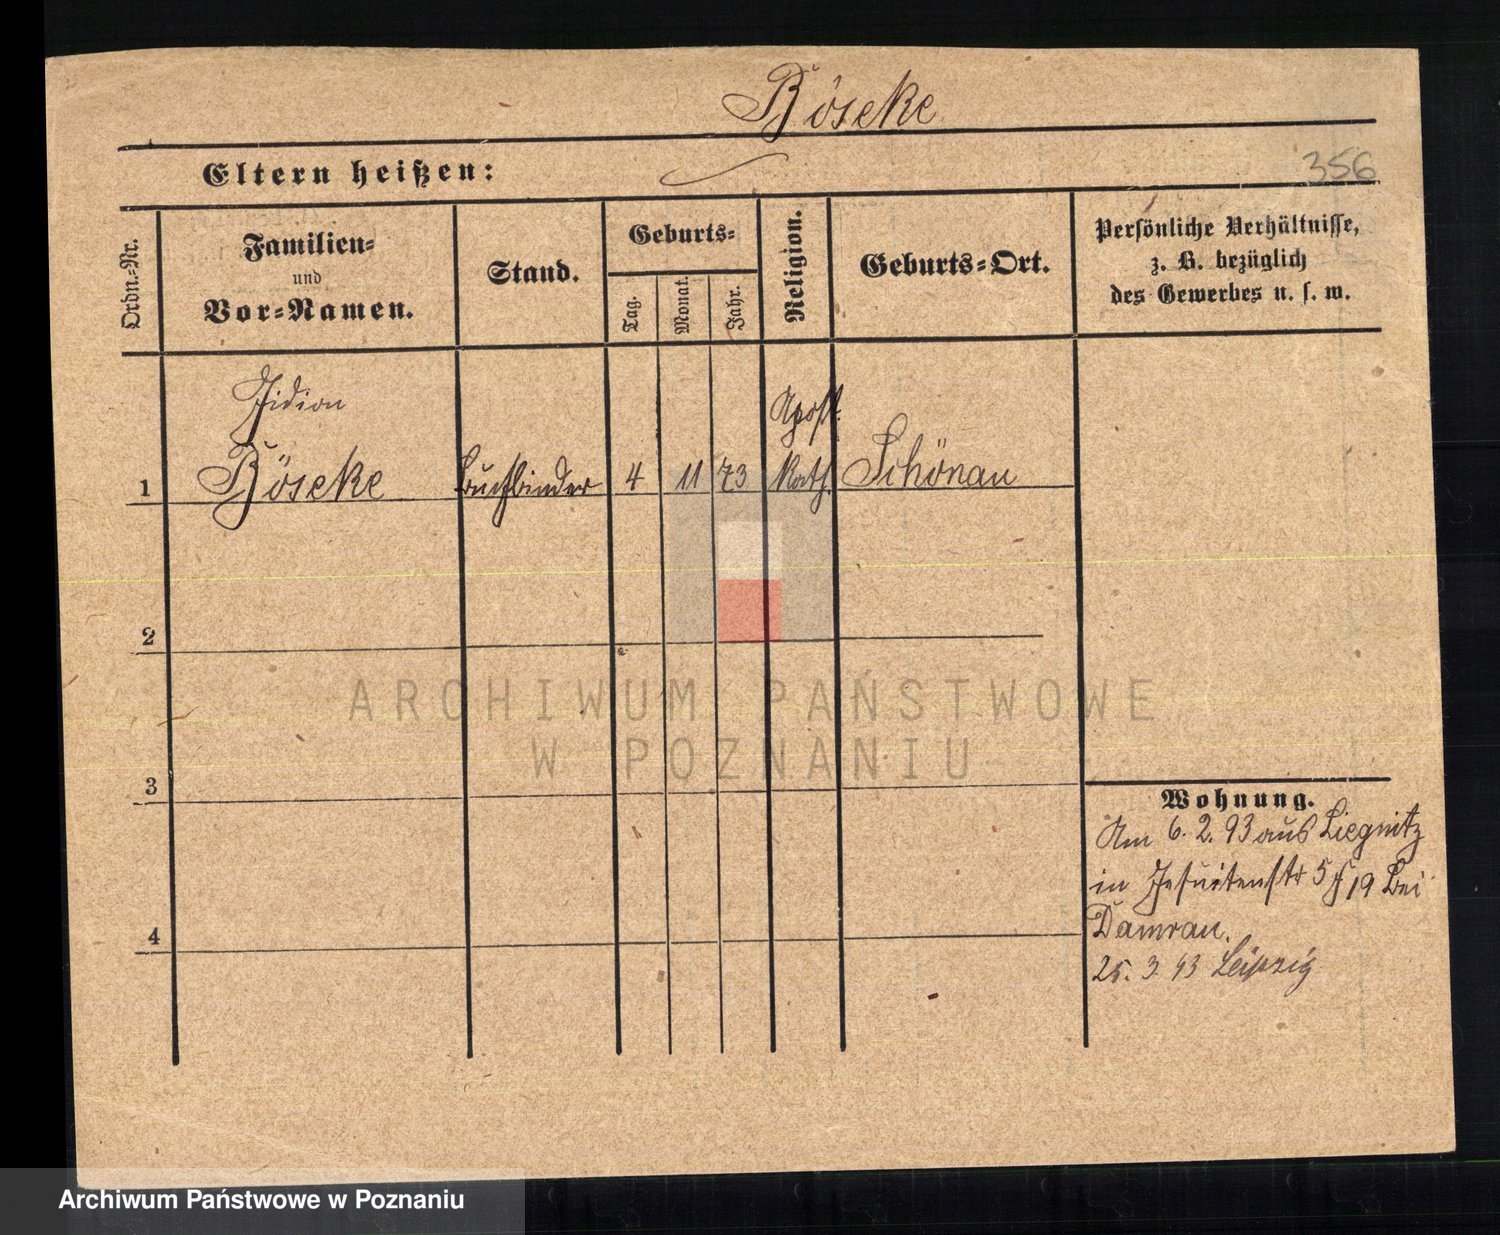 Böseke
Eltern heißen:
356
Ordn.-Nr.
Familien-
und
Vor-Namen.
Stand.
Geburts-
Tag.
Monat.
Jahr.
Religion.
Geburts-Ort.
Persönliche Verhältnisse,
z. B. bezüglich
des Gewerbes u. s. w.
Apost.
1 Böseke Buchbinder 4 11 73 Kath. Schönau
2
3
4
Wohnung.
Am 6. 2. 93 aus Liegnitz
in Jesuitenstr 5 19 bei
Damrau.
25. 3. 93 Leipzig
ARCHIWUM PAŃSTWOWE
W POZNANIU
Archiwum Państwowe w Poznaniu